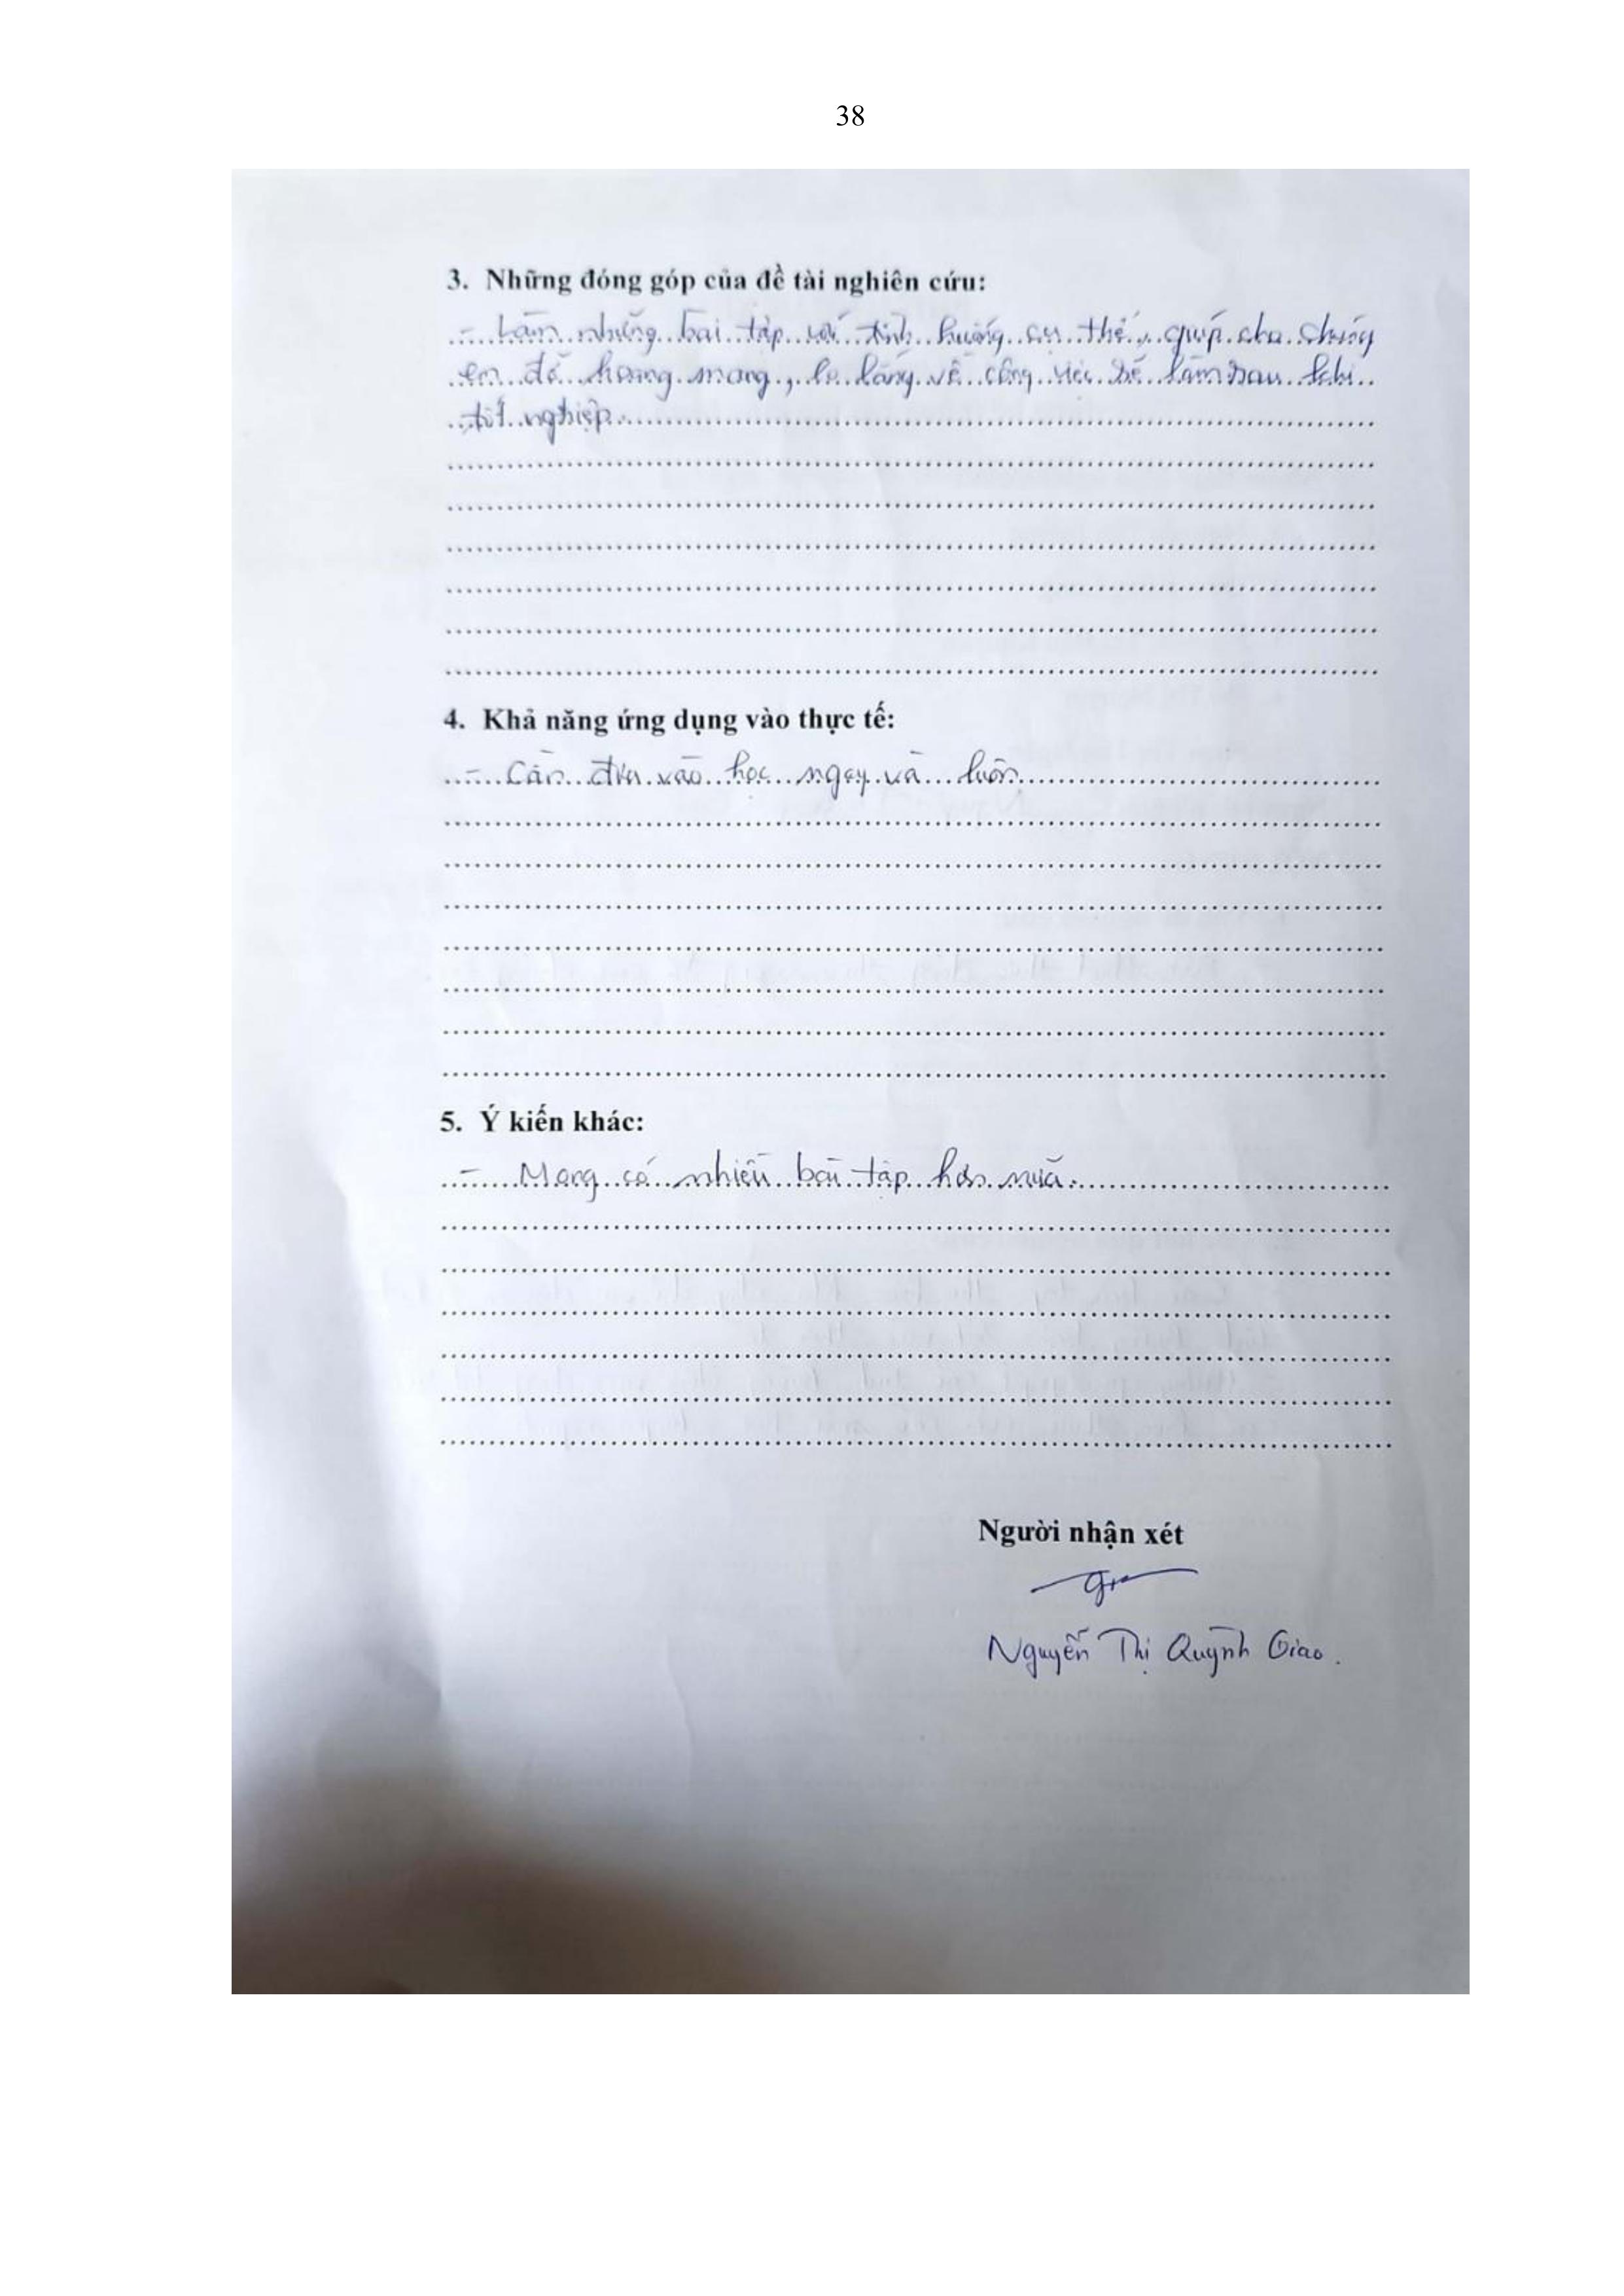 38
3. Những đóng góp của đề tài nghiên cứu:
- Làm những bài tập với tình huống cụ thể, giúp cho chúng
em đỡ hoang mang, lo lắng về công việc sẽ làm sau khi
tốt nghiệp.
4. Khả năng ứng dụng vào thực tế:
- Cần đưa vào học ngay và luôn
5. Ý kiến khác:
- Mong có nhiều bài tập hơn nữa.
Người nhận xét
Nguyễn Thị Quỳnh Giao.